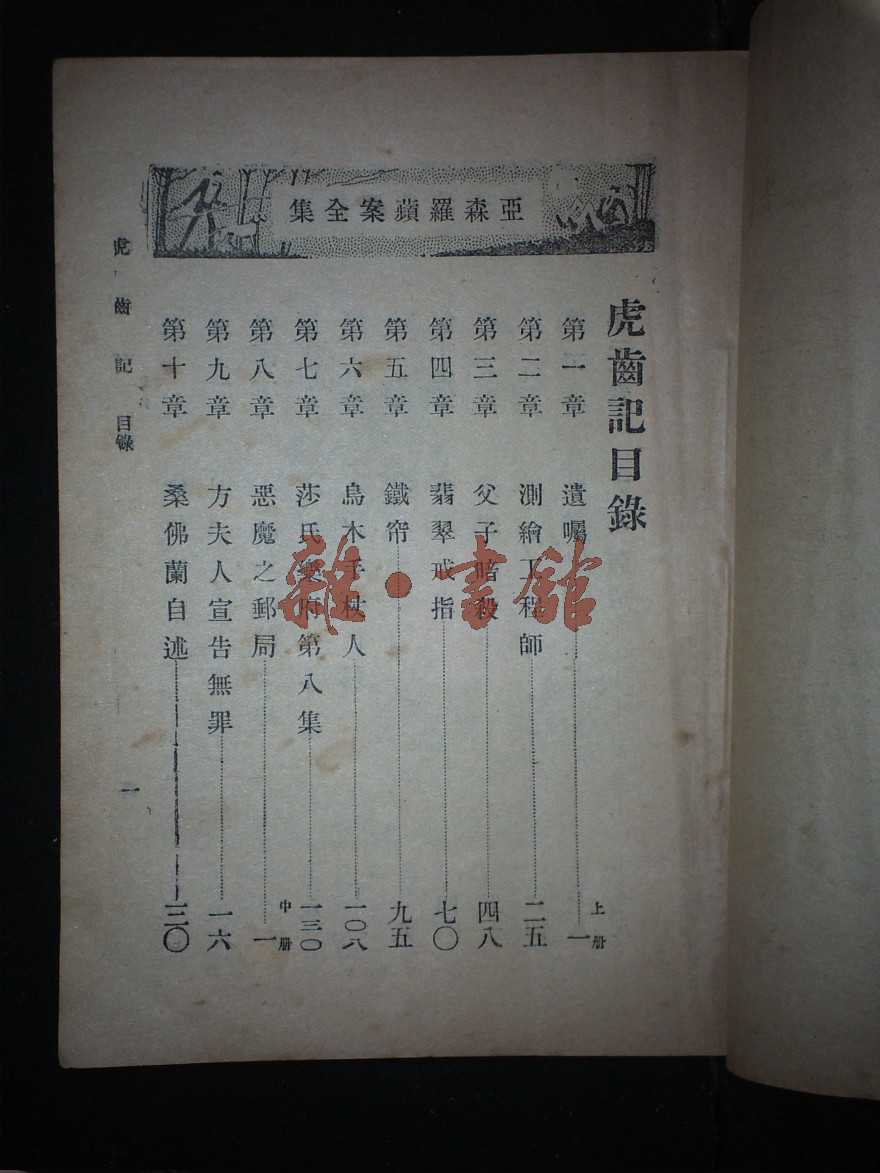 亞森羅蘋案全集
虎齒記目錄
第一章 遺囑 上册 一
第二章 測繪工程師 二五
第三章 父子暗殺 四八
第四章 翡翠戒指 七〇
第五章 鐵帘 九五
第六章 烏木手杖人 一〇八
第七章 莎氏樂府第八集 一三〇
第八章 惡魔之郵局 中册 一
第九章 方夫人宣告無罪 一六
第十章 桑佛蘭自述 三〇
虎齒記 目錄 一
雜·書館